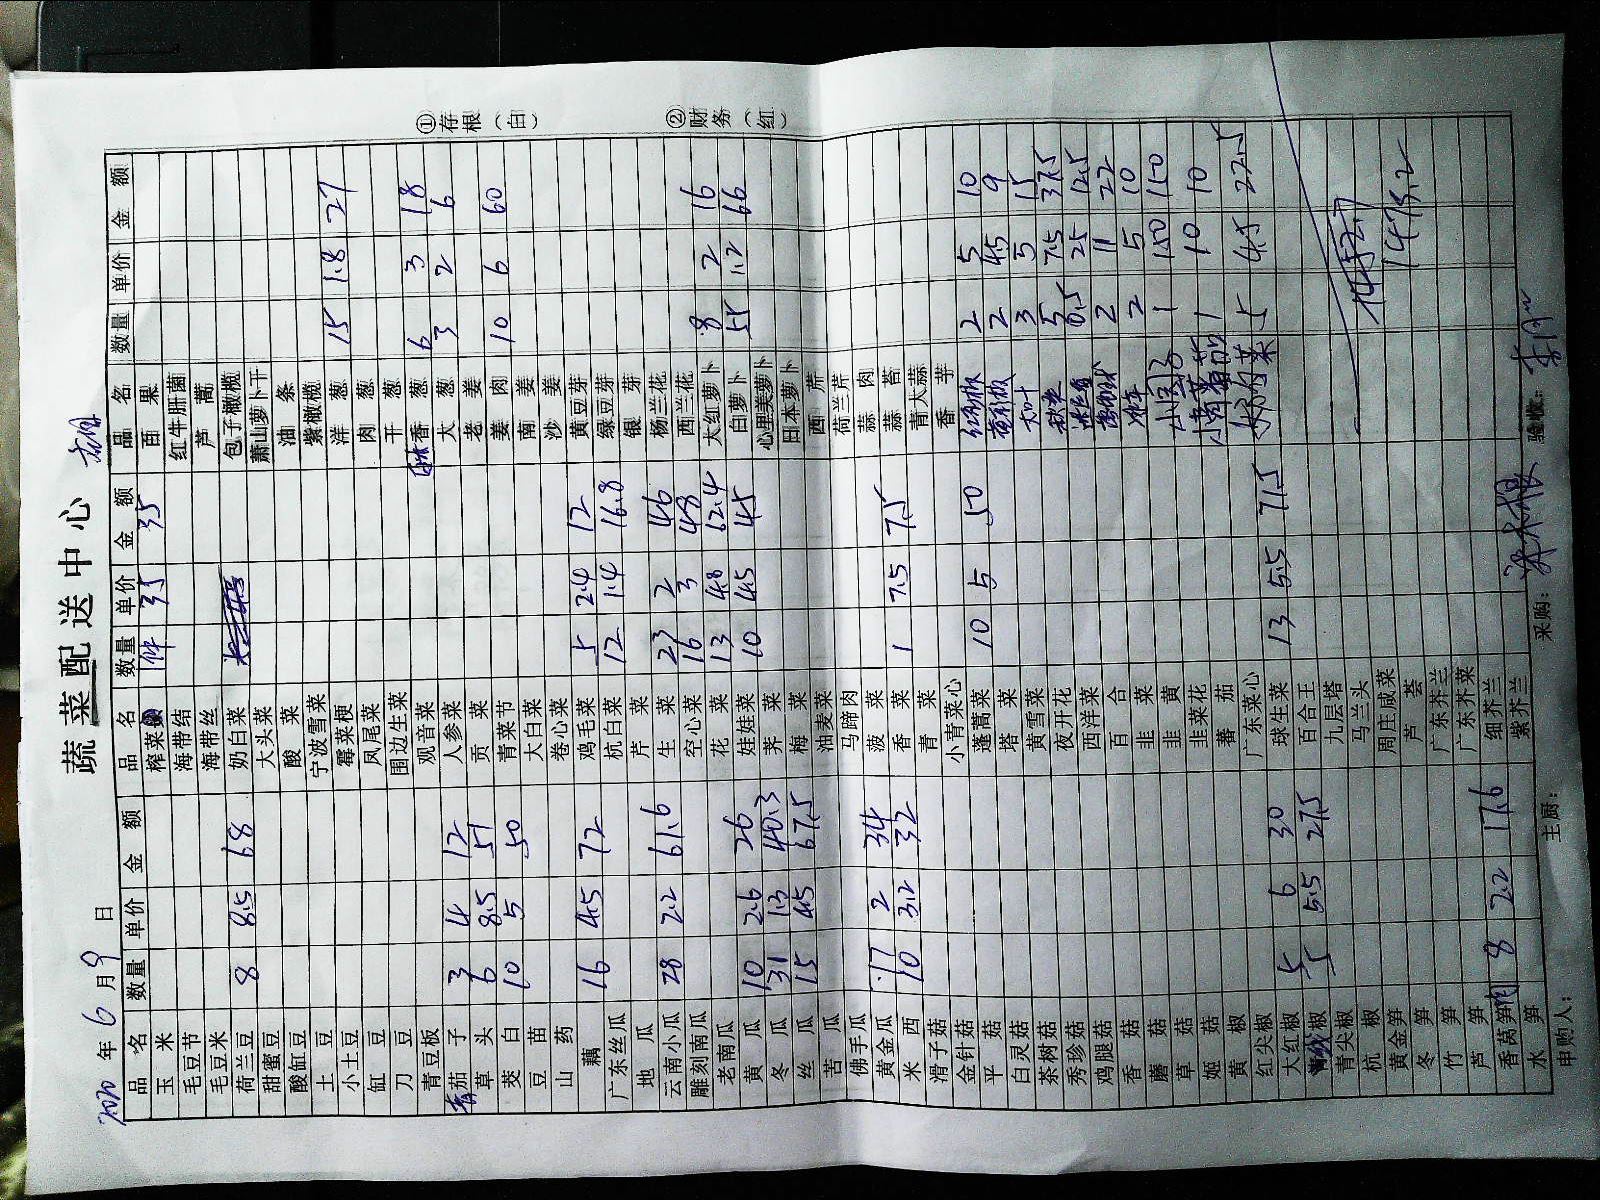 蔬菜配送中心
2020 年 6 月 9 日
品名 数量 单价 金额 品名 数量 单价 金额 品名 数量 单价 金额
玉米 榨菜 件 35 35 百果
毛豆节 海带结 红牛肝菌
毛豆米 海带丝 芦蒿
荷兰豆 8 8.5 68 奶白菜 包子橄榄
甜蜜豆 大头菜 萧山萝卜干
酸缸豆 酸菜 油条
土豆 宁波雪菜 紫橄榄
小土豆 霉菜梗 洋葱 15 1.8 27
缸豆 凤尾菜 肉葱
刀豆 围边生菜 干葱
青豆板 观音菜 香葱 6 3 18
茄子 3 4 12 人参菜 大葱 3 2 6
草头 6 8.5 51 贡菜 老姜
茭白 10 5 50 青菜节 姜肉 10 6 60
豆苗 大白菜 南姜
山药 卷心菜 沙姜
藕 16 4.5 72 鸡毛菜 5 2.4 12 黄豆芽
广东丝瓜 杭白菜 12 1.4 16.8 绿豆芽
地瓜 芹菜 银芽
云南小瓜 28 2.2 61.6 生菜 23 2 46 杨兰花
雕刻南瓜 空心菜 16 3 48 西兰花
老南瓜 花菜 13 4.8 62.4 大红萝卜 8 2 16
黄瓜 10 2.6 26 娃娃菜 10 4.5 45 白萝卜 55 1.2 66
冬瓜 31 1.3 40.3 荠菜 心里美萝卜
丝瓜 15 4.5 67.5 梅菜 日本萝卜
苦瓜 油麦菜 西芹
佛手瓜 马蹄肉 荷兰芹
黄金瓜 17 2 34 菠菜 蒜肉
米西 10 3.2 32 香菜 1 7.5 7.5 蒜苔
滑子菇 青菜 青大蒜
金针菇 小青菜心 香芋
平菇 蓬蒿菜 10 5 50 2 5 10
白灵菇 塔菜 2 4.5 9
茶树菇 黄雪菜 3 5 15
秀珍菇 夜开花 5 7.5 37.5
鸡腿菇 西洋菜 0.5 25 12.5
香菇 百合 2 11 22
蘑菇 韭菜 2 5 10
草菇 韭黄 1 150 150
姬菇 韭菜花 1 10 10
黄椒 蕃茄 5 4.5 22.5
红尖椒 广东菜心
大红椒 5 6 30 球生菜 13 5.5 71.5
椒 5 5.5 27.5 百合王
青尖椒 九层塔
杭椒 马兰头
黄金笋 周庄咸菜 1473.2
冬笋 芦荟
竹笋 广东芥兰
芦笋 广东芥菜
香莴笋 8 2.2 17.6 细芥兰
水笋 紫芥兰
申购人： 主厨： 采购： 验收：
①存根（白）
②财务（红）